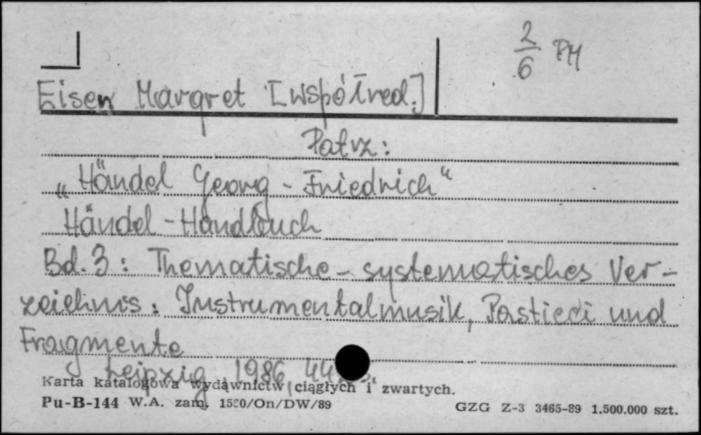 2
6 PM
Eisen Margret [współred.]
Patrz:
„Händel Georg - Friedrich“
Händel - Handbuch
Bd. 3: Thematische - systematisches Ver-
zeichnis: Instrumentalmusik, Pasticci und
Fragmente
Leipzig 1986
Karta katalogowa wydawnictw ciągłych i zwartych.
Pu-B-144 W.A. zam. 1520/On/DW/89 GZG Z-3 3465-89 1.500.000 szt.